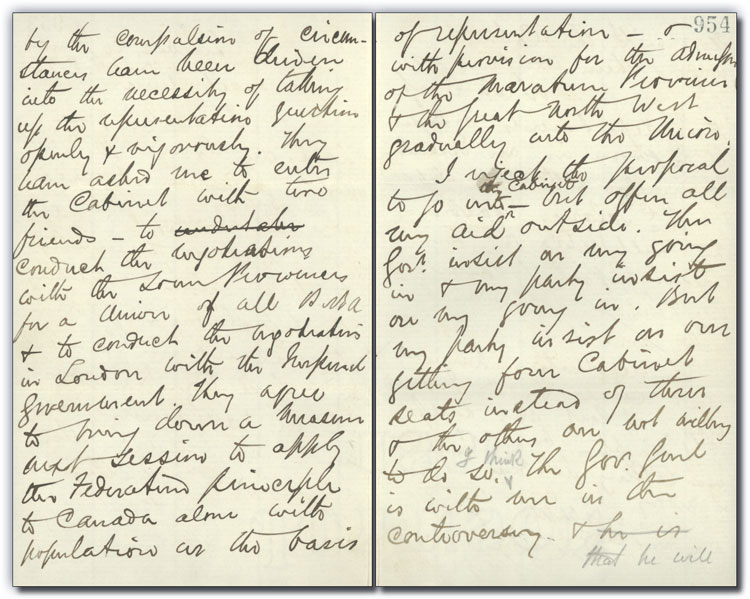 by the compulsion of circum-
stances have been driven
into the necessity of taking
up the representation question
openly & vigorously. They
have asked me to enter
the Cabinet with two
friends – to undertake
conduct the negotiations
with the Lower Provinces
for a Union of all B.N.A
& to conduct the negotiations
in London with the Imperial
Government. They agree
to bring down a Measure
next Session to apply
the Federation principle
to Canada alone with
population as the basis
954
of representation – &
with provision for the admission
of the Maratime Provinces
& the great North West
gradually into the Union.
I reject the proposal
the Cabinet
to go into – but offer all
my aid outside. The
Govt. insist on my going
in & my party insist
on my going in. But
my party insist on our
getting four Cabinet
seats instead of three
& the others are not willing
I think
to do so. The Gov. Genl
is with me in the
controversy – & he is
that he will